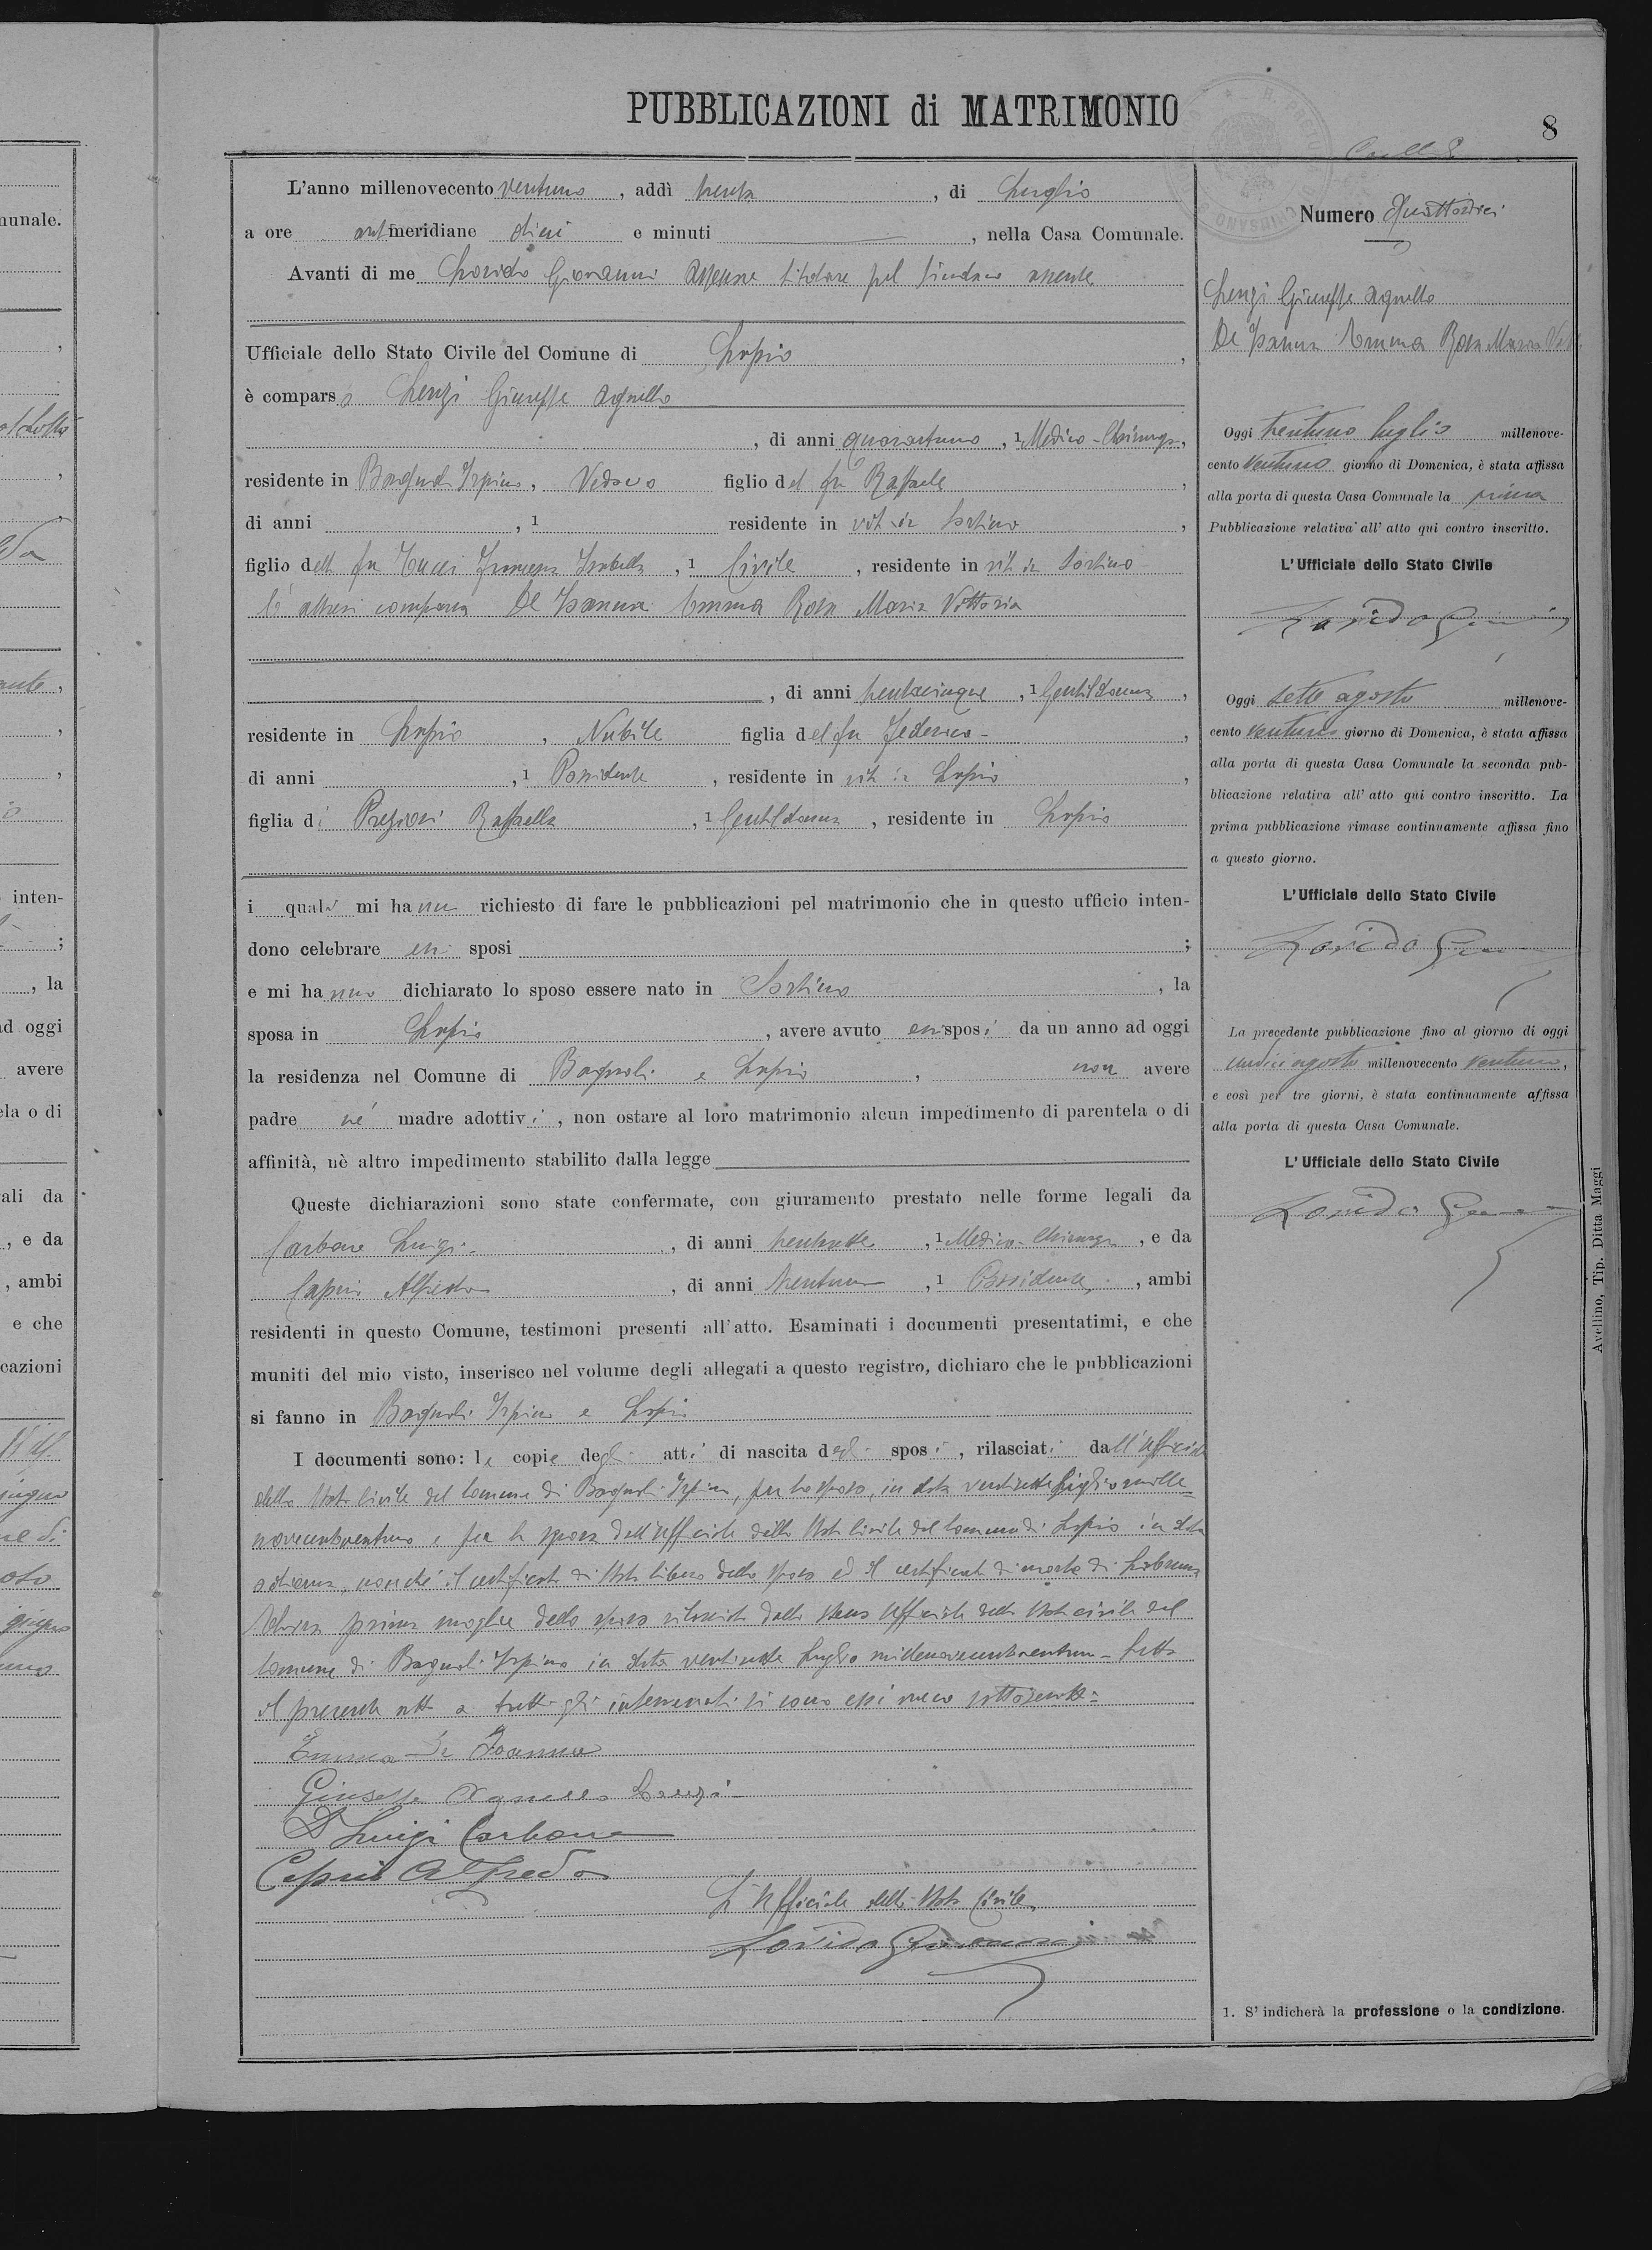 PUBBLICAZIONI di MATRIMONIO
8
L'anno millenovecento ventuno, addì trenta, di Luglio
a ore antimeridiane dieci e minuti, nella Casa Comunale.
Avanti di me Lovido Giovanni Assessore titolare pel Sindaco assente
Ufficiale dello Stato Civile del Comune di Lapio,
è comparso Lenzi Giuseppe Agnello
, di anni quarantuno, 1 Medico-Chirurgo,
residente in Bagnoli Irpino, Vedovo figlio del fu Raffaele,
di anni , 1 residente in vita in Sortino,
figlio della fu Tucci Francesca Isabella, 1 Civile, residente in vita in Sortino
È altresì comparsa De Joanna Emma Rosa Maria Vittoria
, di anni trentacinque, 1 Gentildonna,
residente in Lapio, Nubile figlia del fu Federico,
di anni , 1 Possidente, residente in vita in Lapio,
figlia di Preziosi Raffaella, 1 Gentildonna, residente in Lapio
i quali mi hanno richiesto di fare le pubblicazioni pel matrimonio che in questo ufficio inten-
dono celebrare essi sposi ;
e mi hanno dichiarato lo sposo essere nato in Sortino, la
sposa in Lapio, avere avuto essi sposi da un anno ad oggi
la residenza nel Comune di Bagnoli e Lapio, non avere
padre nè madre adottivi, non ostare al loro matrimonio alcun impedimento di parentela o di
affinità, nè altro impedimento stabilito dalla legge
Queste dichiarazioni sono state confermate, con giuramento prestato nelle forme legali da
Carbone Luigi, di anni, 1 Medico-Chirurgo, e da
Alfredo, di anni trentuno, 1 Possidente, ambi
residenti in questo Comune, testimoni presenti all'atto. Esaminati i documenti presentatimi, e che
muniti del mio visto, inserisco nel volume degli allegati a questo registro, dichiaro che le pubblicazioni
si fanno in Bagnoli Irpino e Lapio
I documenti sono: le copie degli atti di nascita degli sposi, rilasciati dall'ufficiale
dello Stato Civile del Comune di Bagnoli Irpino, per lo sposo, in data ventisette Luglio mille=
novecentoventuno e per la sposa dall'Ufficiale dello Stato Civile del Comune di Lapio in data
odierna, nonché il certificato di Stato libero dello sposo ed il certificato di morte di
prima moglie dello sposo rilasciato dallo stesso Ufficiale dello Stato civile del
Comune di Bagnoli Irpino in data ventisette Luglio millenovecentoventuno - Letto
il presente atto a tutti gli intervenuti si sono essi meco sottoscritti=
Emma De Joanna
Giuseppe Agnello Lenzi
Dr Luigi Carbone
Alfredo
L'Ufficiale dello Stato Civile
Lovido Giovanni
Numero Quattordici
Lenzi Giuseppe Agnello
De Joanna Emma Rosa Maria Vitt.
Oggi trentuno luglio millenove-
cento ventuno giorno di Domenica, è stata affissa
alla porta di questa Casa Comunale la prima
Pubblicazione relativa all' atto qui contro inscritto.
L'Ufficiale dello Stato Civile
Lovido Giovanni
Oggi sette agosto millenove-
cento ventuno giorno di Domenica, è stata affissa
alla porta di questa Casa Comunale la seconda pub-
blicazione relativa all' atto qui contro inscritto. La
prima pubblicazione rimase continuamente affissa fino
a questo giorno.
L'Ufficiale dello Stato Civile
Lovido Giovanni
La precedente pubblicazione fino al giorno di oggi
undici agosto millenovecento ventuno,
e così per tre giorni, è stata continuamente affissa
alla porta di questa Casa Comunale.
L'Ufficiale dello Stato Civile
Lovido Giovanni
Avellino, Tip. Ditta Maggi
1. S' indicherà la professione o la condizione.